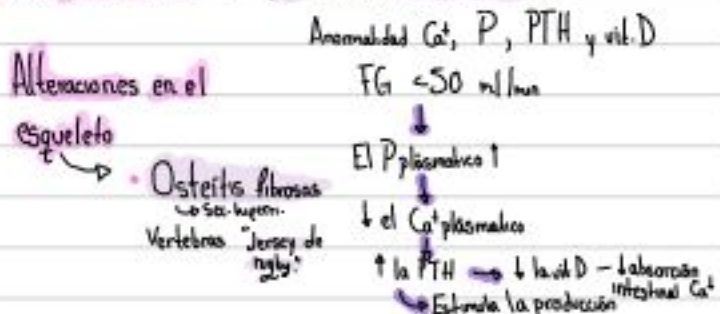 Anormalidad Ca⁺, P, PTH y vit. D
Alteraciones en el
esqueleto
FG <50 ml/min
↓
El P plásmatico ↑
↓
↓ el Ca⁺ plásmatico
↓
↑ la PTH → ↓ la vit D - ↓ absorción
intestinal Ca⁺
Estimula la producción
• Osteítis fibrosas
Vertebras "Jersey de
rugby."